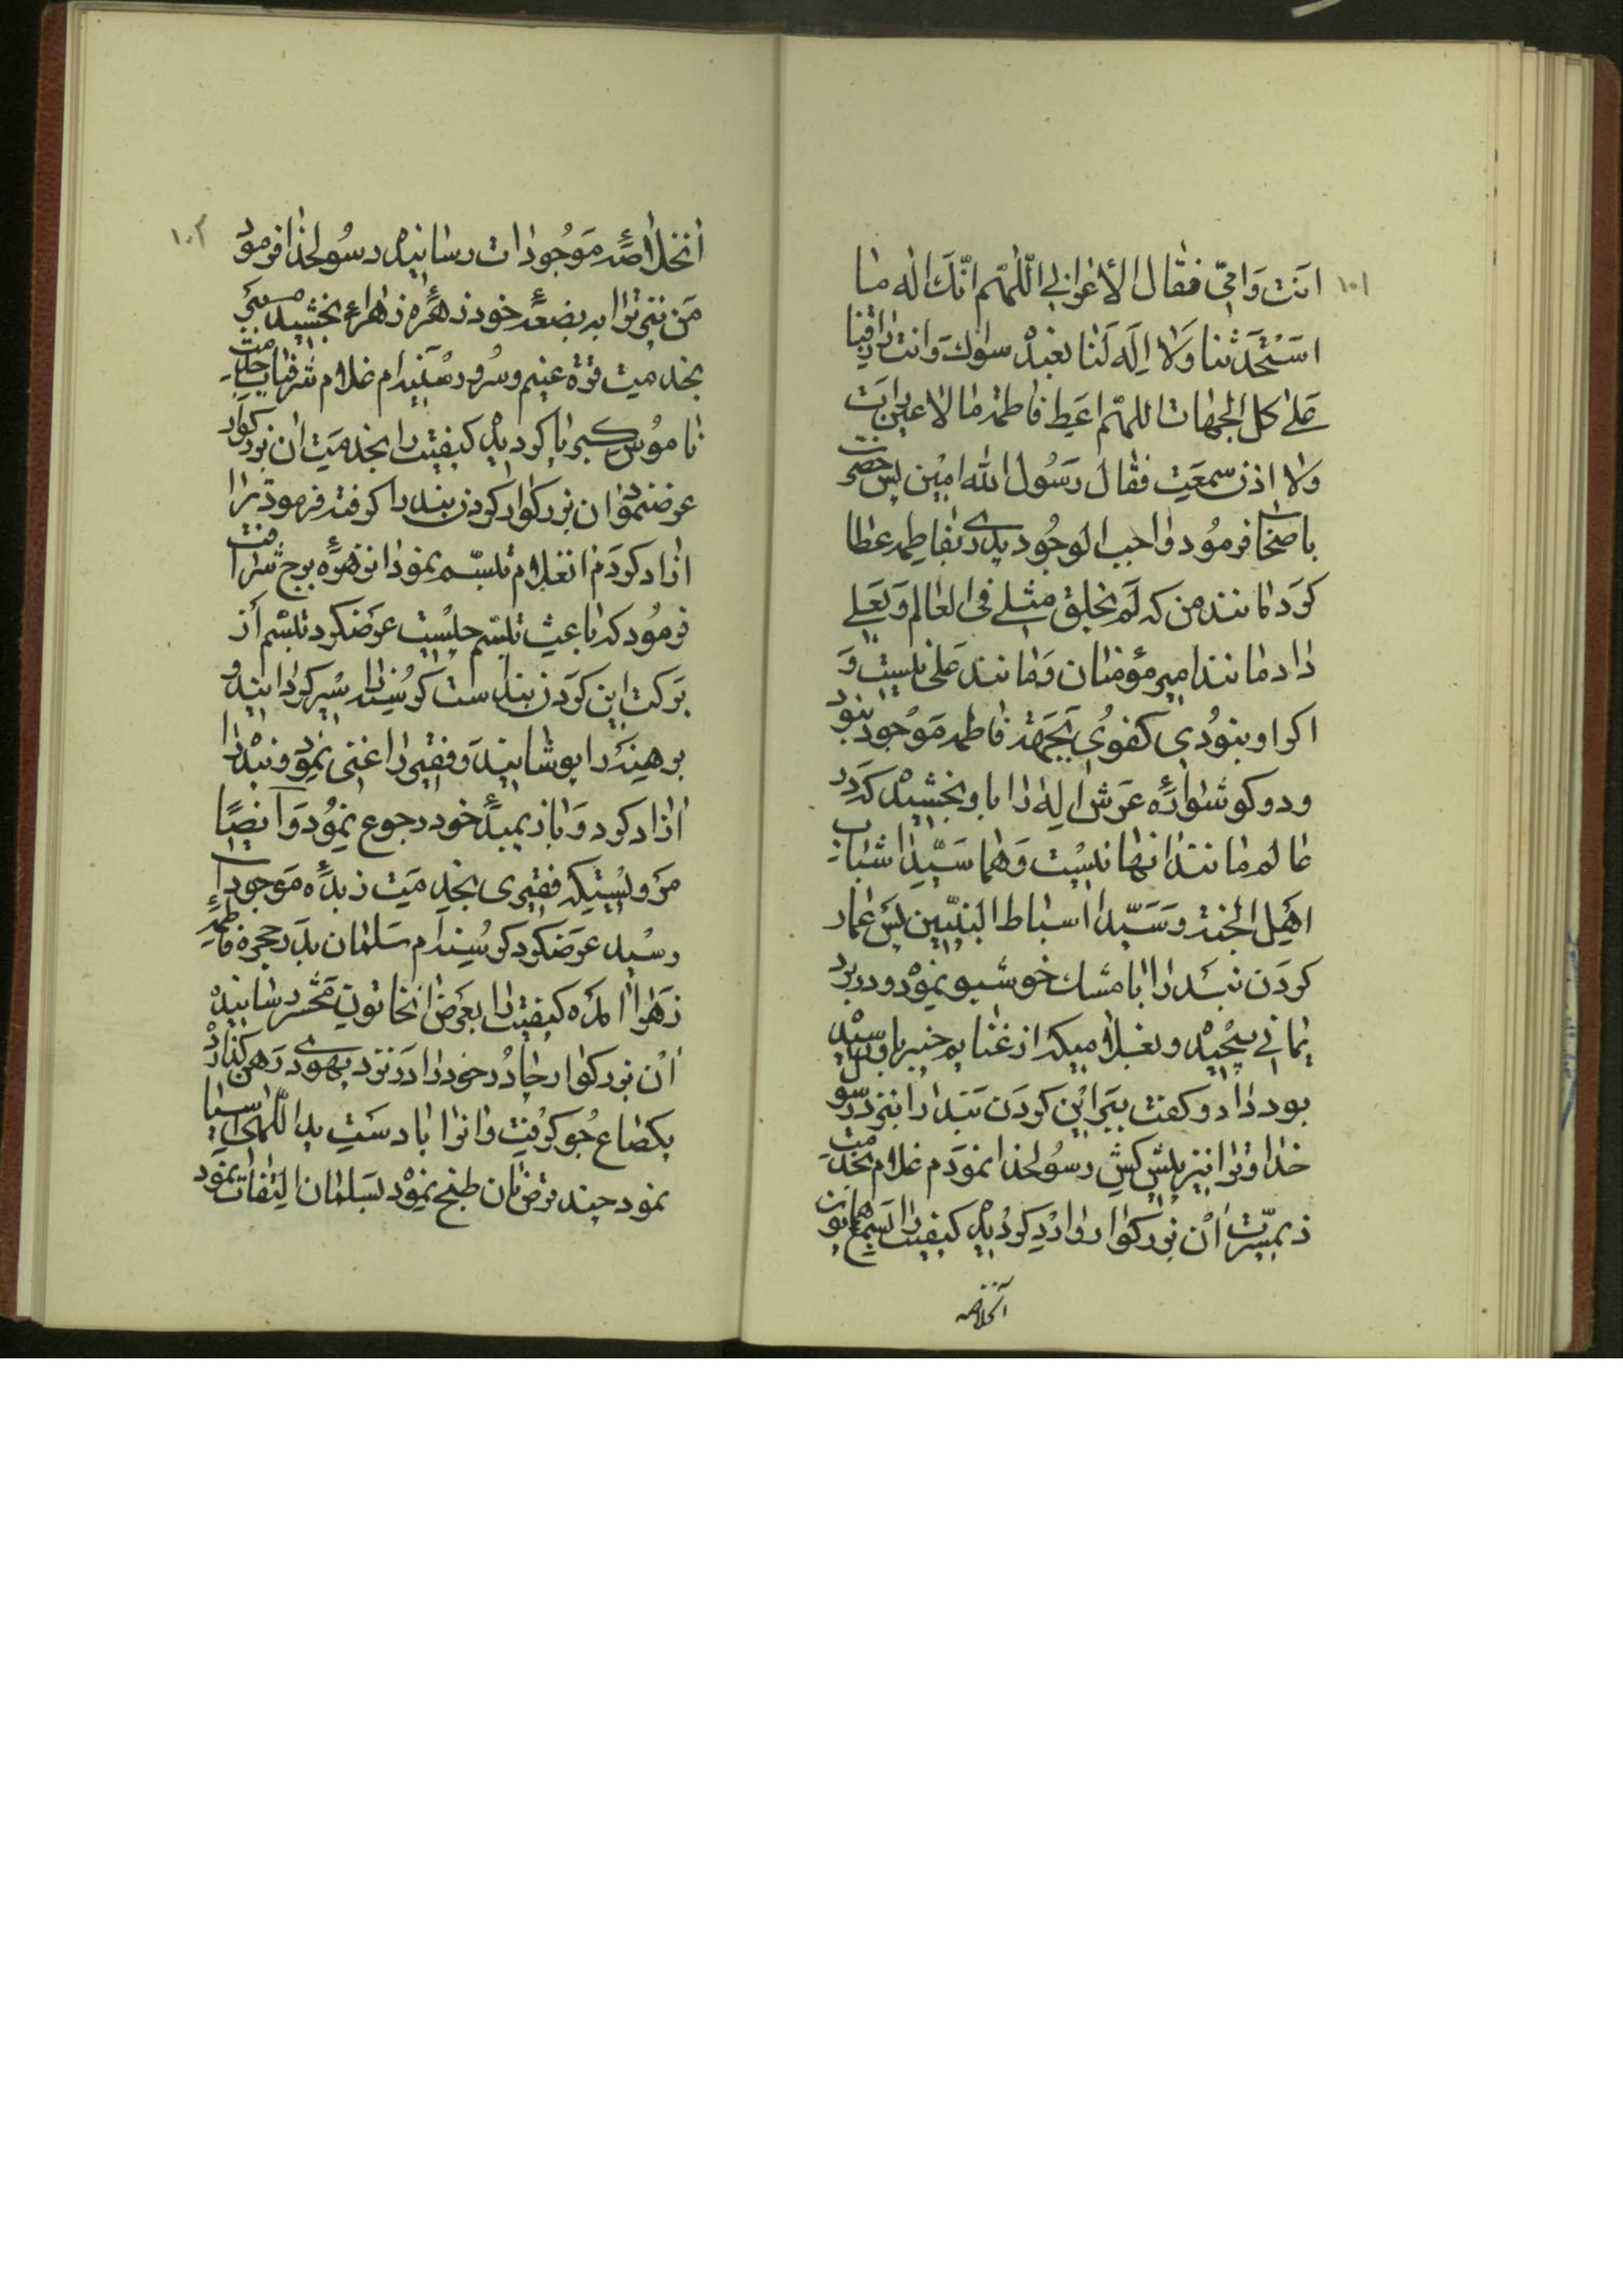 ١٠١
انت وامّی فقال الأعرابی اللّهمّ انّك اله ما
استحدثناك ولا اله لنا نعبد سواك وانت رازقنا
علی كل الجهات اللهمّ اعط فاطمه ما لا عین رات
ولا اذن سمعت فقال رسول الله امین پس حضرت
باصحاب فرمود واجب الوجود بدنیا بفاطمه عطا
كرد مانند من كه لم یخلق مثلی فی العالم و بعلی
داد مانند امیر مؤمنان و مانند علی نیست و
اكر او نبودی كفوی بجهة فاطمه موجود نبود
و دو كوشواره عرش اله را باو بخشید كه در
عالم مانند انها نیست و هما سیّدا شباب
اهل الجنه و سیّدا اسباط النبیّین پس عمار
كردن بند را با مشك خوشبو نموده و در برد
یمانی پیچیده و بغلامیكه از غنایم خیبر باو رسیده
بود داد و كفت ببر این كردن بند را بنزد رسول
خدا و ترا نیز پیشكش رسولخدا نمودم غلام بخدمت
ذیمسّرت آن بزركوار وارد كردیده كیفیت را بسمع همایون
آنخلاصه
١٠٢
آنخلاصه موجودات رسانیده رسولخدا فرمود
من نیز ترا به بضعه خود زهره زهرا ع بخشیدم
بخدمت قرة عینم و سرور سینه ام غلام شرفیاب خدمت
ناموس كبریا كردیده كیفیت را بخدمت ان بزركوار
عرض نمود ان بزركوار كردن بند را كرفته فرمود ترا
ازاد كردم انغلام تبسّم نمود انزهره برج شرافت
فرمود كه باعث تبسّم چیست عرضكرد تبسّم از
بركت این كردن بند است كرسنه را سیر كردانید و
برهنه را پوشانید و فقیر را غنی نمود و بنده را
ازاد كرد و باز بمبدء خود رجوع نمود و ایضًا
مرویستكه فقیری بخدمت زبده موجودات
رسید عرضكرد كرسنه ام سلمان بدر حجره فاطمه
زهرا امده كیفیت را بعرض انخاتون محشر رسانیده
آن بزركوار چادر خود را در نزد یهودی رهن كذارده
یكصاع جو كرفت و انرا با دست ید اللّهی اسیا
نمود چند قرص نان طبخ نموده بسلمان التفات نمود